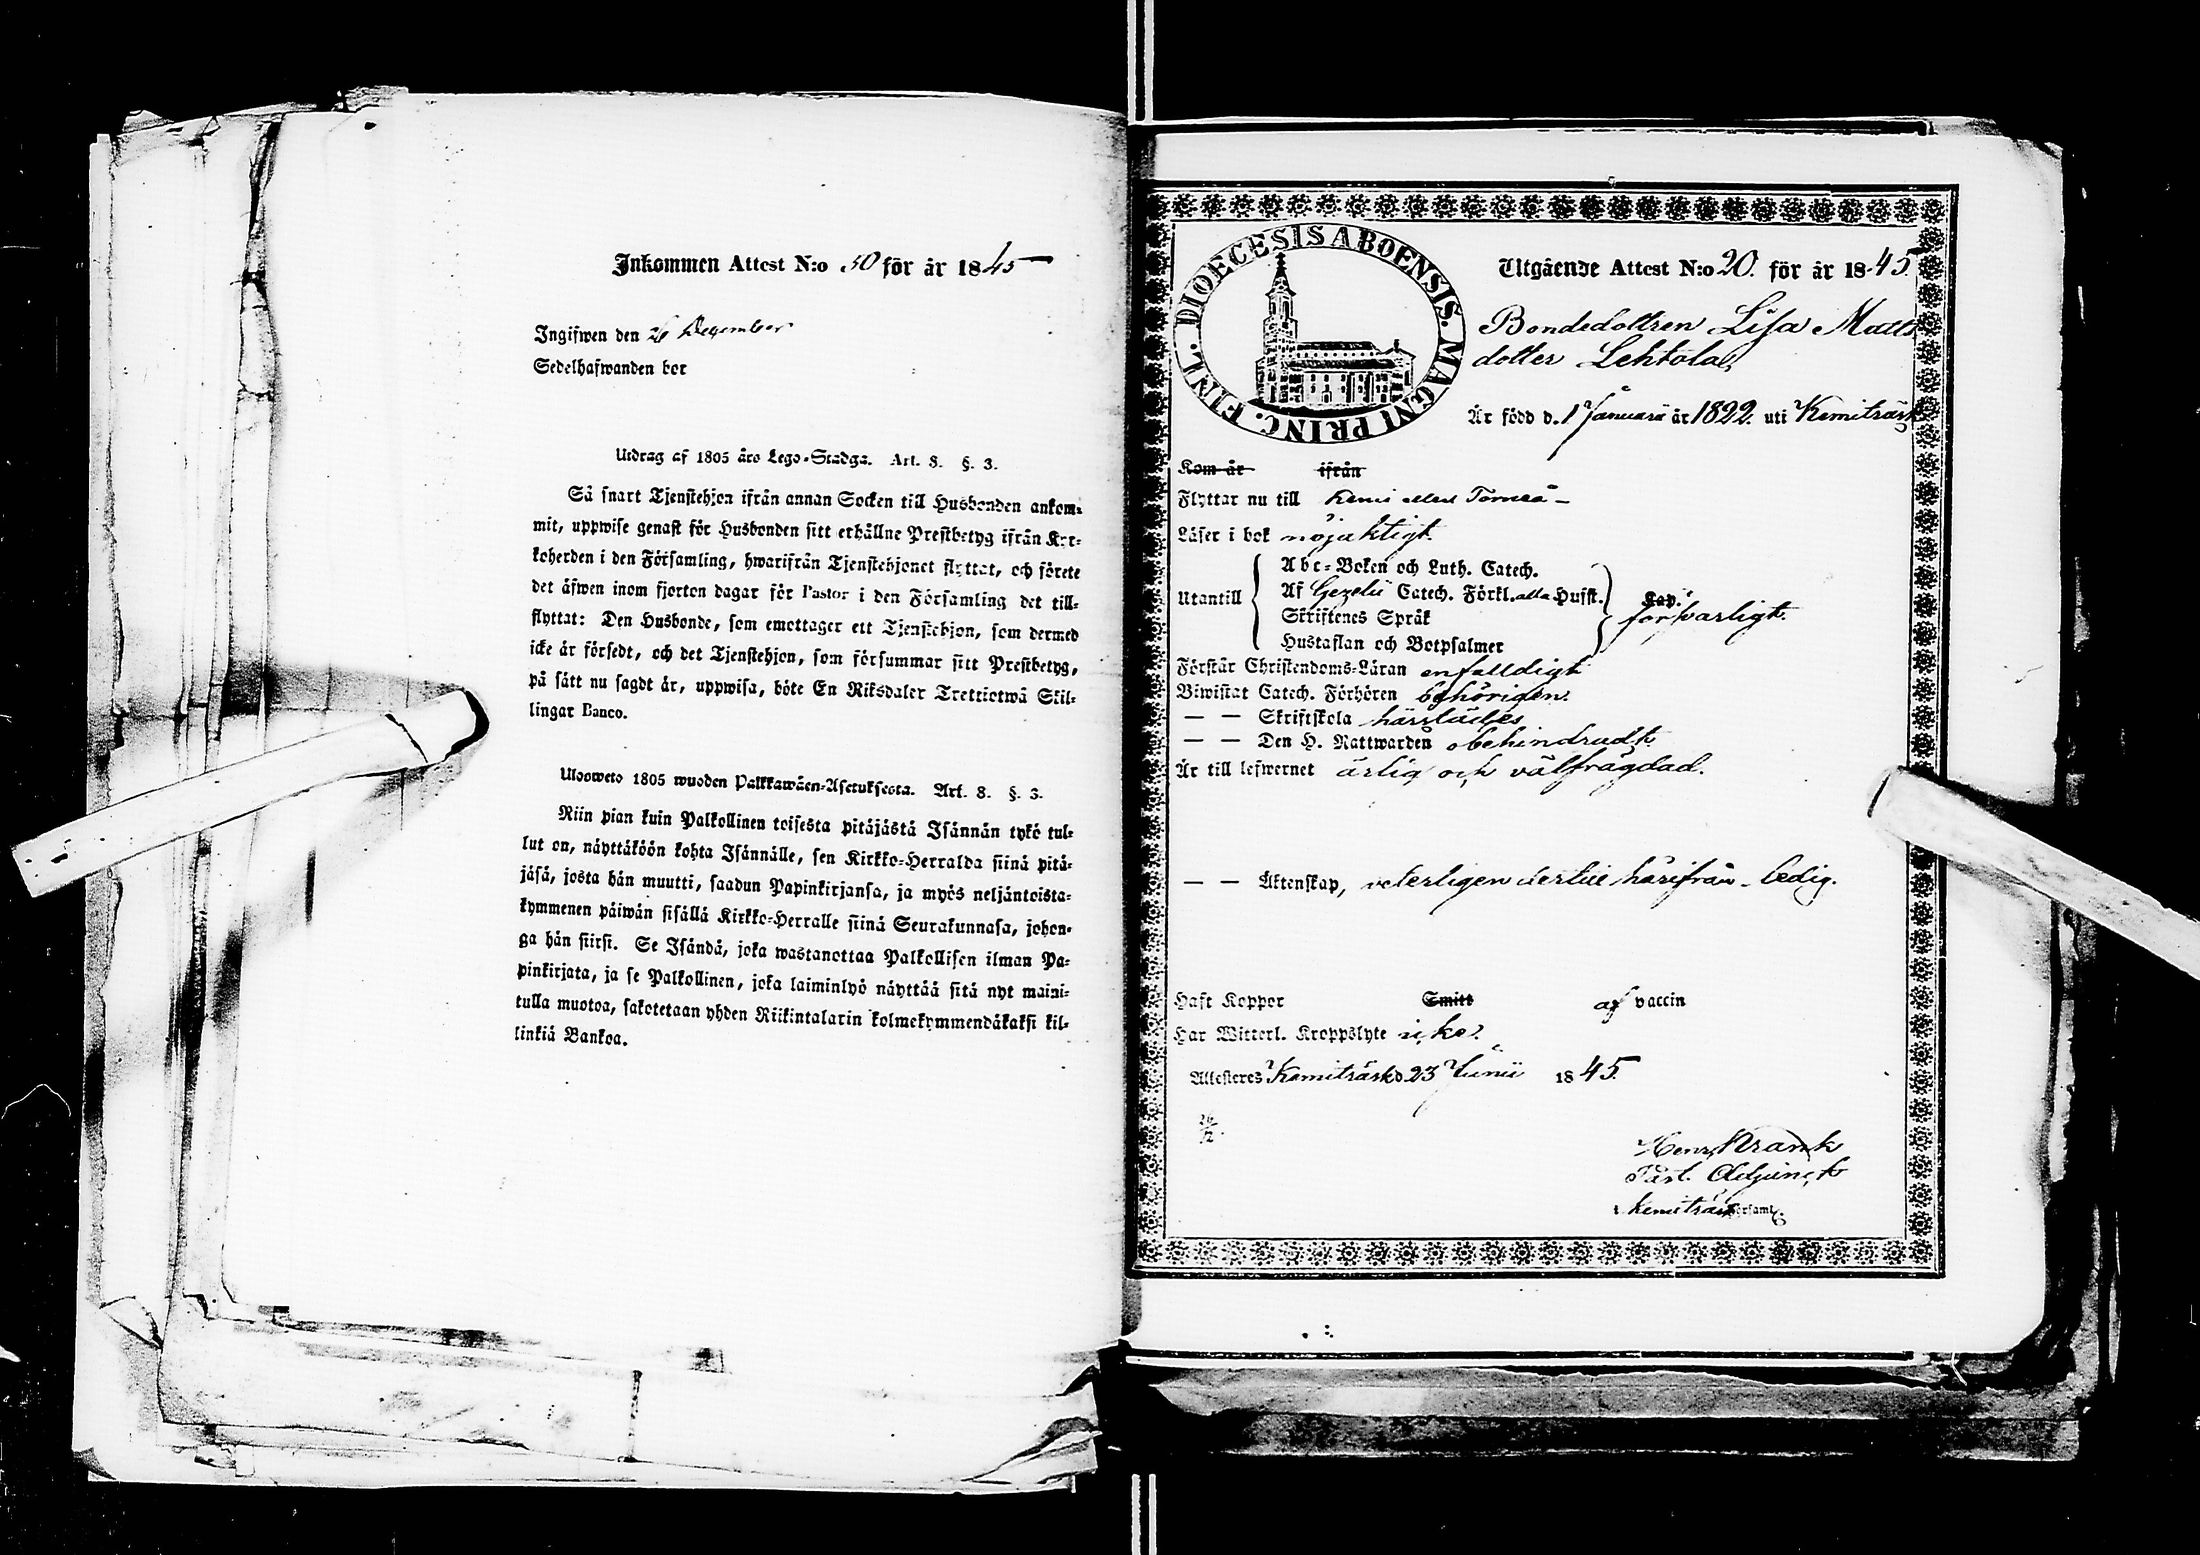 Inkommen Attest N:o 30 för år 1845
Ingifwen den 26 December
Sedelhafwanden bor
Utdrag af 1805 års Lego-Stadga. Art. 8. §. 3.
Så snart Tjenstehjon ifrån annan Socken till Husbonden ankom-
mit, uppwise genast för Husbonden sitt erhållne Prestbetyg ifrån Kyr-
koherden i den Församling, hwarifrån Tjenstehjonet flyttat, och förete
det äfwen inom fjorton dagar för Pastor i den Församling det till-
flyttat: Den Husbonde, som emottager ett Tjenstehjon, som dermed
icke är försedt, och det Tjenstehjon, som försummar sitt Prestbetyg,
på sätt nu sagdt är, uppwisa, böte En Riksdaler Trettiotwå Skil-
lingar Banco.
Uloosweto 1805 wuoden Palkkawäen-Asetuksesta. Art. 8. §. 3.
Niin pian kuin Palkollinen toisesta pitäjästä Isännän tykö tul-
lut on, näyttäköön kohta Isännälle, sen Kirkko-Herralda siinä pitä-
jäsä, josta hän muutti, saadun Papinkirjansa, ja myös neljäntoista-
kymmenen päiwän sisällä Kirkko-Herralle siinä Seurakunnasa, johon-
ga hän siirsi. Se Isändä, joka wastanottaa Palkollisen ilman Pa-
pinkirjata, ja se Palkollinen, joka laiminlyö näyttää sitä nyt maini-
tulla muotoa, sakotetaan yhden Riikintalarin kolmekymmendäkaksi kil-
linkiä Bankoa.
DIOECESIS ABOENSIS. MAGNI PRINC. FINL.
Utgående Attest N:o 20. för år 1845.
Bondedottren Lisa Matts
dotter Lehtola,
Är född d. 1 Januarii år 1822. uti Kemiträsk
Kom år ifrån
Flyttar nu till Kemi eller Torneå
Läser i bok nöjaktigt.
Utantill
Abc-Boken och Luth. Catech.
Af Gezelii Catech. Förkl. alla Hufst.
Skriftenes Språk
Hustaflan och Botpsalmer
Kap.
försvarligt.
Förstår Christendoms-Läran enfalldigt
Biwistat Catech. Förhören behörigen.
— — Skriftskola härstädes
— — Den H. Nattwarden obehindradt
Är till lefwernet ärlig och välfrägdad.
— — Äktenskap, veterligen härifrån ledig.
Haft Koppor Smitt af vaccin
Har Witterl. Kroppslyte icke.
Attesteres Kemiträsk d. 23 Junii 1845.
26/12.
Henr. Krank
Past. Adjunct
i Kemiträsk Församl.